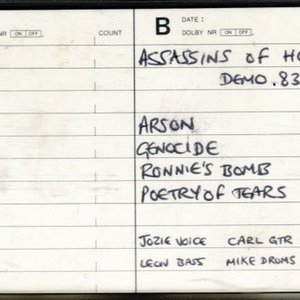 NR ON OFF. COUNT
B DATE :
DOLBY NR ON OFF.
ASSASSINS OF
DEMO.83
ARSON
GENOCIDE
RONNIE'S BOMB
POETRY OF TEARS
JOZIE VOICE CARL GTR
LEON BASS MIKE DRUMS